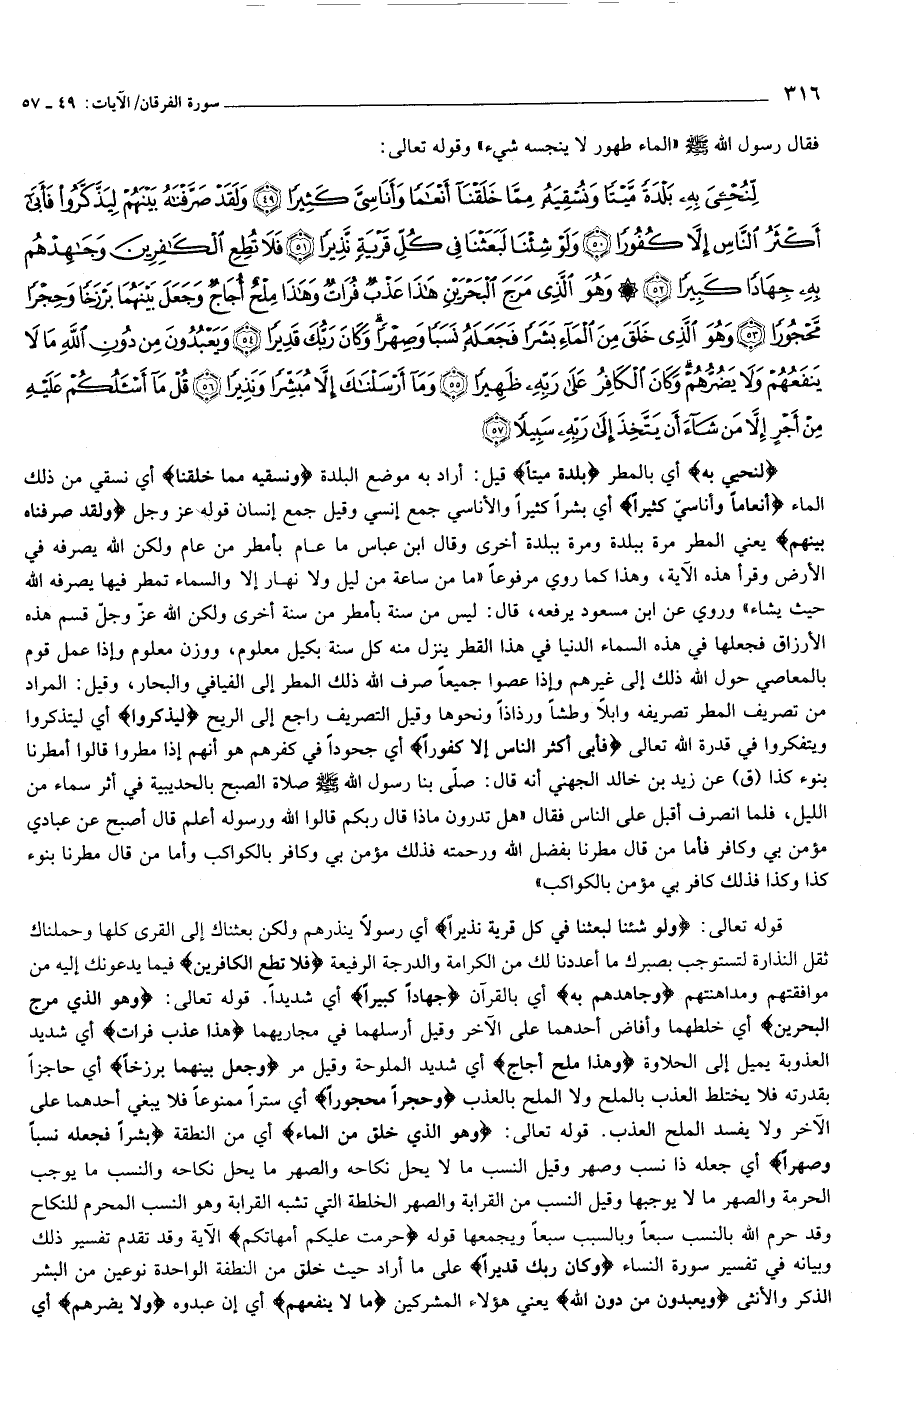 ٣١٦ سورة الفرقان/ الآيات: ٤٩ ـ ٥٧
فقال رسول الله ﷺ «الماء طهور لا ينجسه شيء» وقوله تعالى:
لِّنُحْـِۧىَ بِهِۦ بَلْدَةً مَّيْتًا وَنُسْقِيَهُۥ مِمَّا خَلَقْنَآ أَنْعَٰمًا وَأَنَاسِىَّ كَثِيرًا ﴿٤٩﴾ وَلَقَدْ صَرَّفْنَٰهُ بَيْنَهُمْ لِيَذَّكَّرُوا۟ فَأَبَىٰٓ
أَكْثَرُ ٱلنَّاسِ إِلَّا كُفُورًا ﴿٥٠﴾ وَلَوْ شِئْنَا لَبَعَثْنَا فِى كُلِّ قَرْيَةٍ نَّذِيرًا ﴿٥١﴾ فَلَا تُطِعِ ٱلْكَٰفِرِينَ وَجَٰهِدْهُم
بِهِۦ جِهَادًا كَبِيرًا ﴿٥٢﴾ ۞ وَهُوَ ٱلَّذِى مَرَجَ ٱلْبَحْرَيْنِ هَٰذَا عَذْبٌ فُرَاتٌ وَهَٰذَا مِلْحٌ أُجَاجٌ وَجَعَلَ بَيْنَهُمَا بَرْزَخًا وَحِجْرًا
مَّحْجُورًا ﴿٥٣﴾ وَهُوَ ٱلَّذِى خَلَقَ مِنَ ٱلْمَآءِ بَشَرًا فَجَعَلَهُۥ نَسَبًا وَصِهْرًا ۗ وَكَانَ رَبُّكَ قَدِيرًا ﴿٥٤﴾ وَيَعْبُدُونَ مِن دُونِ ٱللَّهِ مَا لَا
يَنفَعُهُمْ وَلَا يَضُرُّهُمْ ۗ وَكَانَ ٱلْكَافِرُ عَلَىٰ رَبِّهِۦ ظَهِيرًا ﴿٥٥﴾ وَمَآ أَرْسَلْنَٰكَ إِلَّا مُبَشِّرًا وَنَذِيرًا ﴿٥٦﴾ قُلْ مَآ أَسْـَٔلُكُمْ عَلَيْهِ
مِنْ أَجْرٍ إِلَّا مَن شَآءَ أَن يَتَّخِذَ إِلَىٰ رَبِّهِۦ سَبِيلًا ﴿٥٧﴾
﴿لنحيي به﴾ أي بالمطر ﴿بلدة ميتاً﴾ قيل: أراد به موضع البلدة ﴿ونسقيه مما خلقنا﴾ أي نسقي من ذلك
الماء ﴿أنعاماً وأناسيّ كثيراً﴾ أي بشراً كثيراً والأناسي جمع إنسي وقيل جمع إنسان قوله عز وجل ﴿ولقد صرفناه
بينهم﴾ يعني المطر مرة ببلدة ومرة ببلدة أخرى وقال ابن عباس ما عام بأمطر من عام ولكن الله يصرفه في
الأرض وقرأ هذه الآية، وهذا كما روي مرفوعاً «ما من ساعة من ليل ولا نهار إلا والسماء تمطر فيها يصرفه الله
حيث يشاء» وروي عن ابن مسعود يرفعه، قال: ليس من سنة بأمطر من سنة أخرى ولكن الله عزّ وجلّ قسم هذه
الأرزاق فجعلها في هذه السماء الدنيا في هذا القطر ينزل منه كل سنة بكيل معلوم، ووزن معلوم وإذا عمل قوم
بالمعاصي حول الله ذلك إلى غيرهم وإذا عصوا جميعاً صرف الله ذلك المطر إلى الفيافي والبحار، وقيل: المراد
من تصريف المطر تصريفه وابلاً وطشاً ورذاذاً ونحوها وقيل التصريف راجع إلى الريح ﴿ليذكروا﴾ أي ليتذكروا
ويتفكروا في قدرة الله تعالى ﴿فأبى أكثر الناس إلا كفوراً﴾ أي جحوداً في كفرهم هو أنهم إذا مطروا قالوا أمطرنا
بنوء كذا (ق) عن زيد بن خالد الجهني أنه قال: صلّى بنا رسول الله ﷺ صلاة الصبح بالحديبية في أثر سماء من
الليل، فلما انصرف أقبل على الناس فقال «هل تدرون ماذا قال ربكم قالوا الله ورسوله أعلم قال أصبح عن عبادي
مؤمن بي وكافر فأما من قال مطرنا بفضل الله ورحمته فذلك مؤمن بي وكافر بالكواكب وأما من قال مطرنا بنوء
كذا وكذا فذلك كافر بي مؤمن بالكواكب»
قوله تعالى: ﴿ولو شئنا لبعثنا في كل قرية نذيراً﴾ أي رسولاً ينذرهم ولكن بعثناك إلى القرى كلها وحملناك
ثقل النذارة لتستوجب بصبرك ما أعددنا لك من الكرامة والدرجة الرفيعة ﴿فلا تطع الكافرين﴾ فيما يدعونك إليه من
موافقتهم ومداهنتهم ﴿وجاهدهم به﴾ أي بالقرآن ﴿جهاداً كبيراً﴾ أي شديداً. قوله تعالى: ﴿وهو الذي مرج
البحرين﴾ أي خلطهما وأفاض أحدهما على الآخر وقيل أرسلهما في مجاريهما ﴿هذا عذب فرات﴾ أي شديد
العذوبة يميل إلى الحلاوة ﴿وهذا ملح أجاج﴾ أي شديد الملوحة وقيل مر ﴿وجعل بينهما برزخاً﴾ أي حاجزاً
بقدرته فلا يختلط العذب بالملح ولا الملح بالعذب ﴿وحجراً محجوراً﴾ أي ستراً ممنوعاً فلا يبغي أحدهما على
الآخر ولا يفسد الملح العذب. قوله تعالى: ﴿وهو الذي خلق من الماء﴾ أي من النطقة ﴿بشراً فجعله نسباً
وصهراً﴾ أي جعله ذا نسب وصهر وقيل النسب ما لا يحل نكاحه والصهر ما يحل نكاحه والنسب ما يوجب
الحرمة والصهر ما لا يوجبها وقيل النسب من القرابة والصهر الخلطة التي تشبه القرابة وهو النسب المحرم للنكاح
وقد حرم الله بالنسب سبعاً وبالسبب سبعاً ويجمعها قوله ﴿حرمت عليكم أمهاتكم﴾ الآية وقد تقدم تفسير ذلك
وبيانه في تفسير سورة النساء ﴿وكان ربك قديراً﴾ على ما أراد حيث خلق من النطفة الواحدة نوعين من البشر
الذكر والأنثى ﴿ويعبدون من دون الله﴾ يعني هؤلاء المشركين ﴿ما لا ينفعهم﴾ أي إن عبدوه ﴿ولا يضرهم﴾ أي